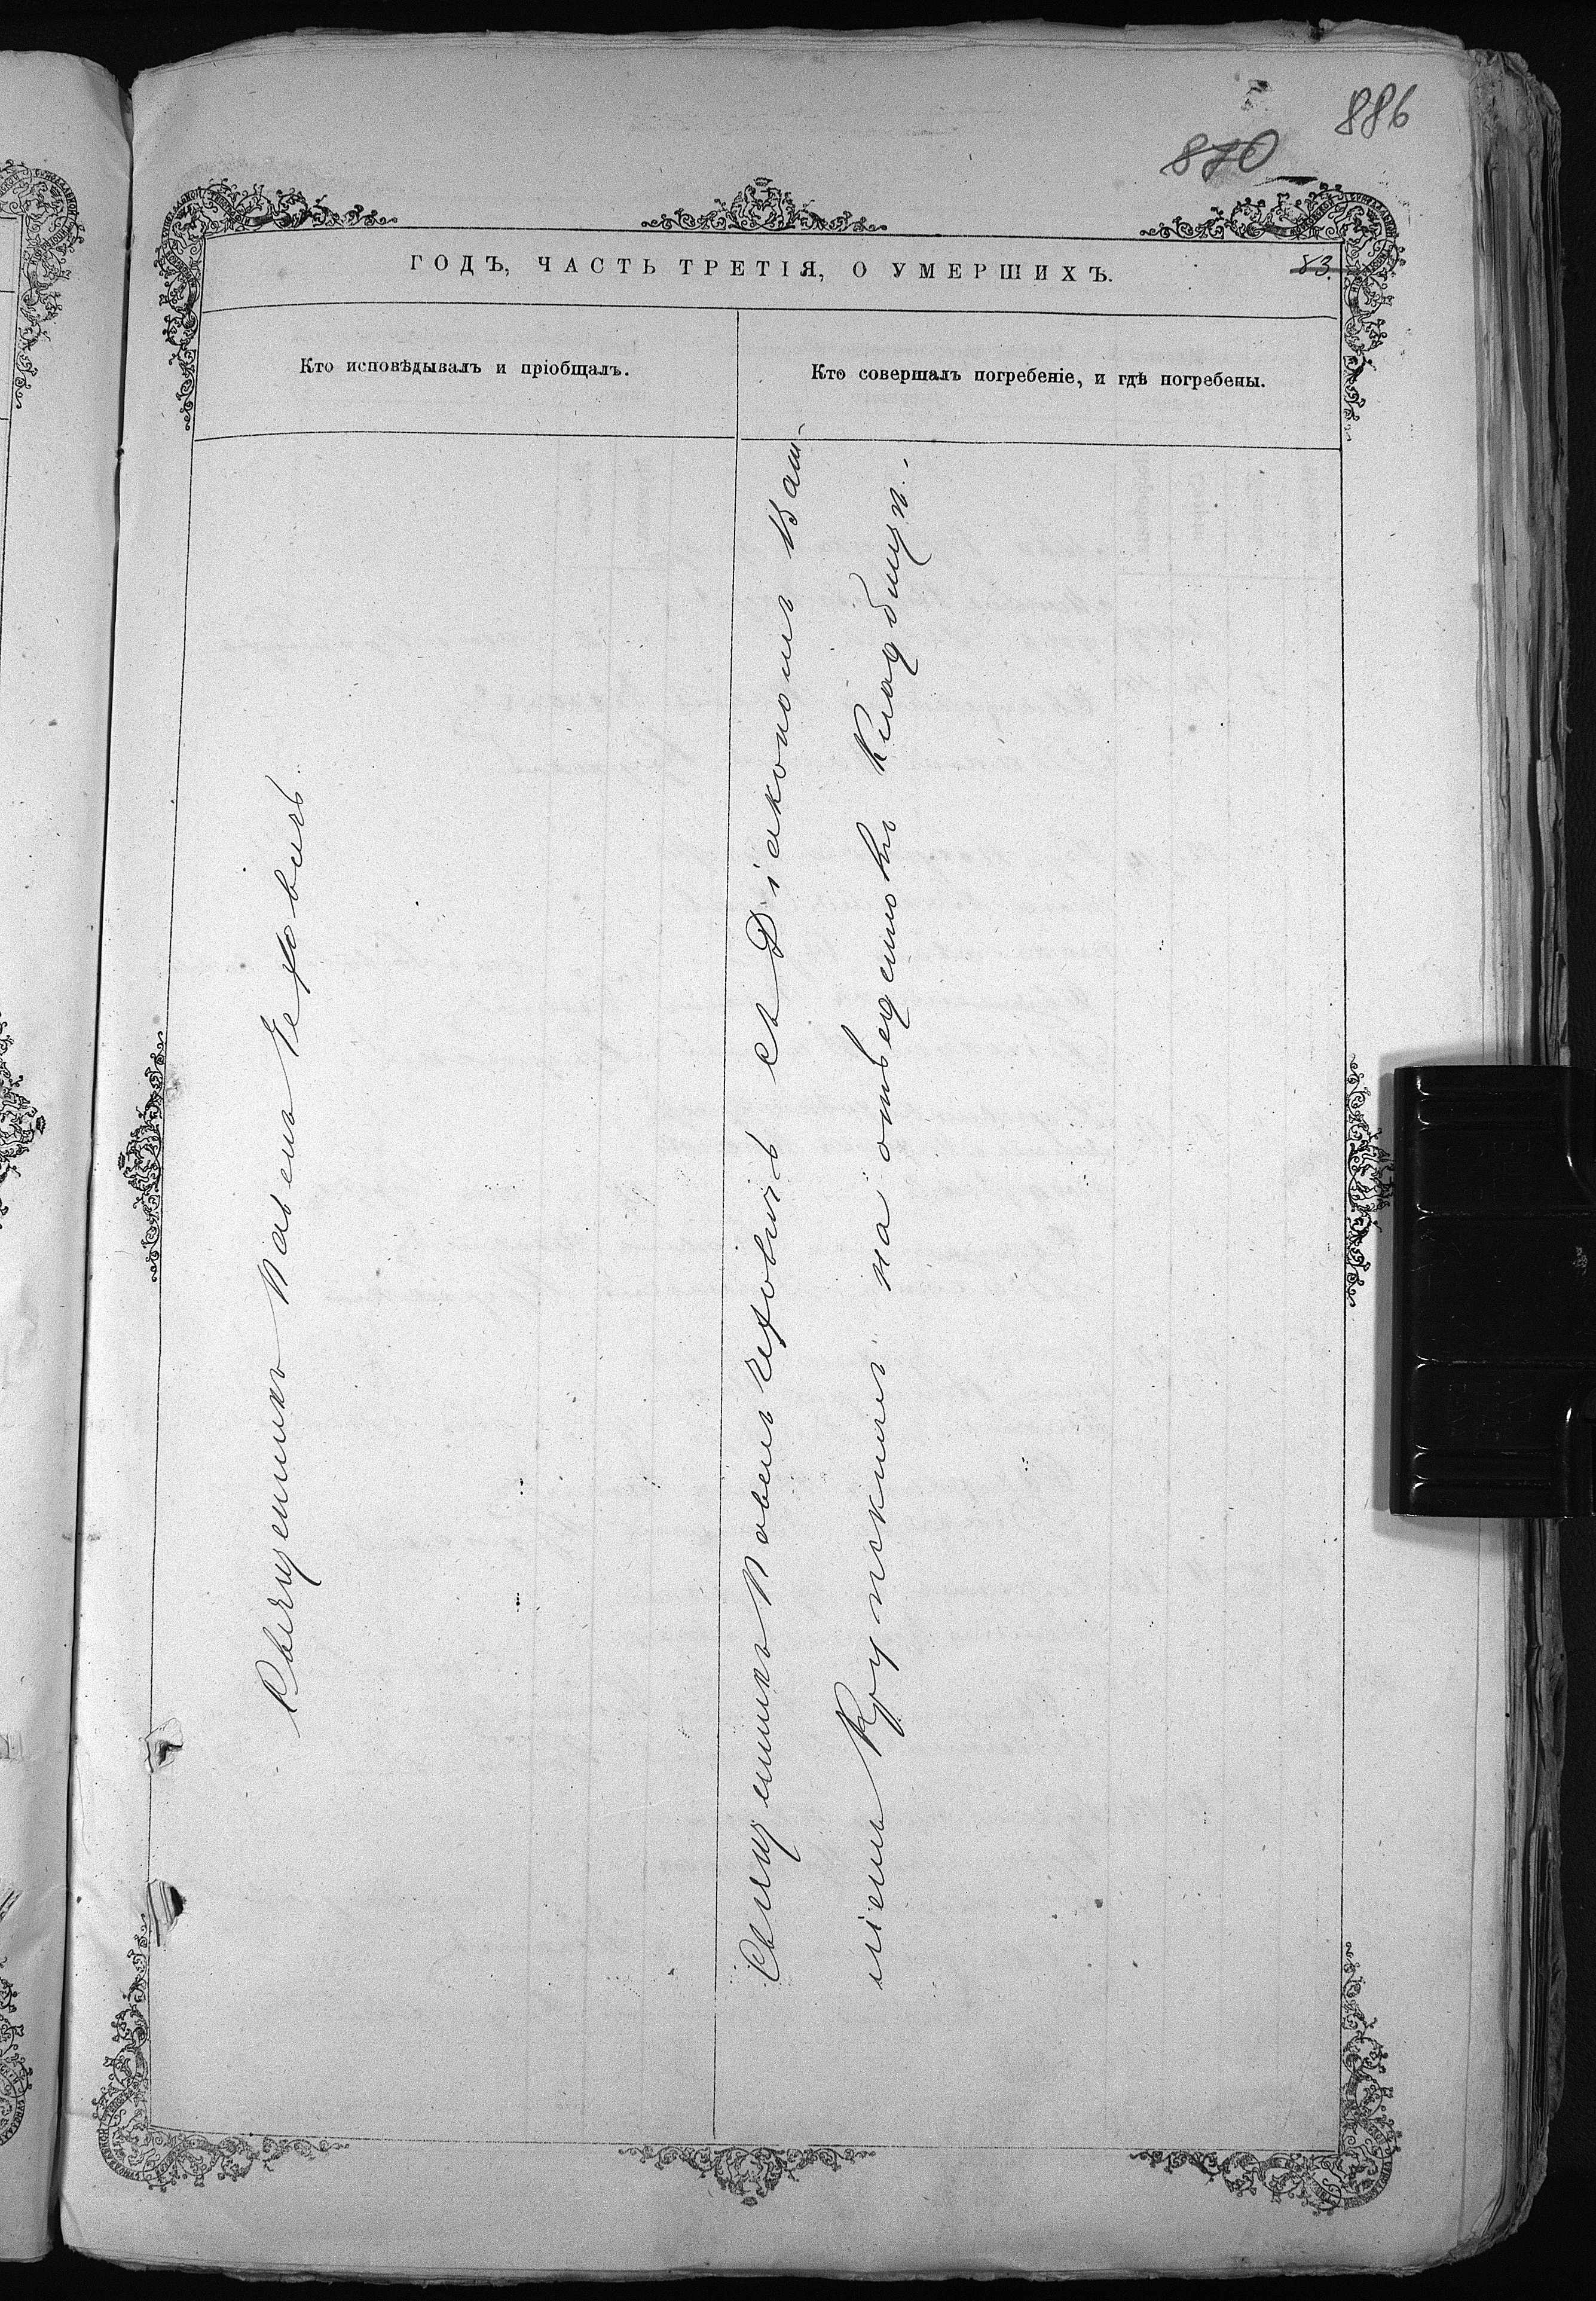 886
870
ГОДЪ, ЧАСТЬ ТРЕТІЯ, О УМЕРШИХЪ.
83.
Кто исповѣдывалъ и пріобщалъ.
Кто совершалъ погребеніе, и гдѣ погребены.
Священникъ Павелъ Чеховичъ
Священникъ Павелъ Чеховичъ съ Діакономъ Ваш-
ліемъ на отведенномъ кладбищѣ.